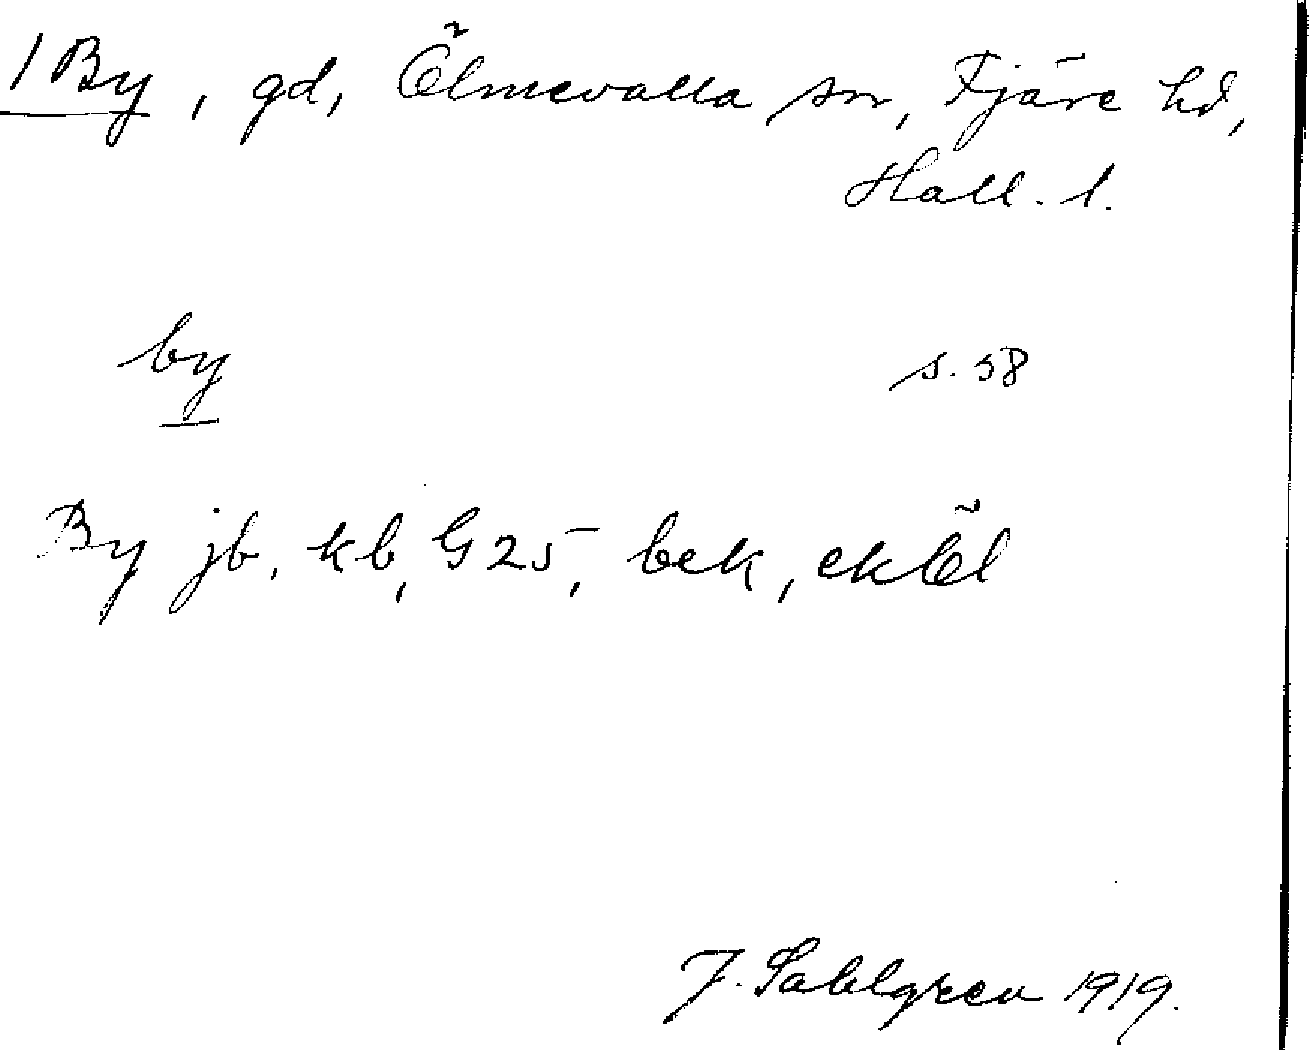 1 By, gd, Ölmevalla sn, Fjäre hd,
Hall. l.
by s. 58
By jb, kb, G25, bek, ekböl
J. Sahlgren 1919.